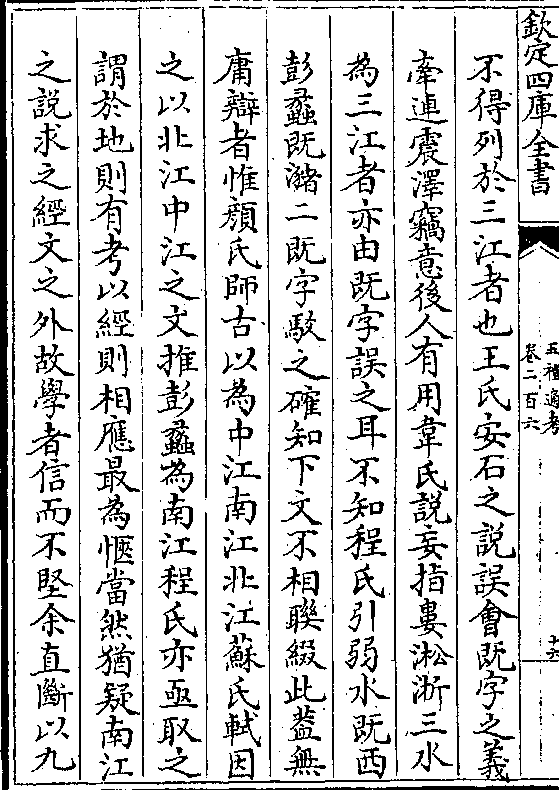 欽定四庫全書
五禮通考
卷二百六
十六
不得列於三江者也王氏安石之説誤會既字之義
牽連震澤竊意後人有用韋氏説妄指婁淞浙三水
為三江者亦由既字誤之耳不知程氏引弱水既西
彭蠡既瀦二既字駮之確知下文不相聯綴此葢無
庸辯者惟顔氏師古以為中江南江北江蘇氏軾因
之以北江中江之文推彭蠡為南江程氏亦亟取之
謂於地則有考以經則相應最為愜當然猶疑南江
之説求之經文之外故學者信而不堅余直斷以九